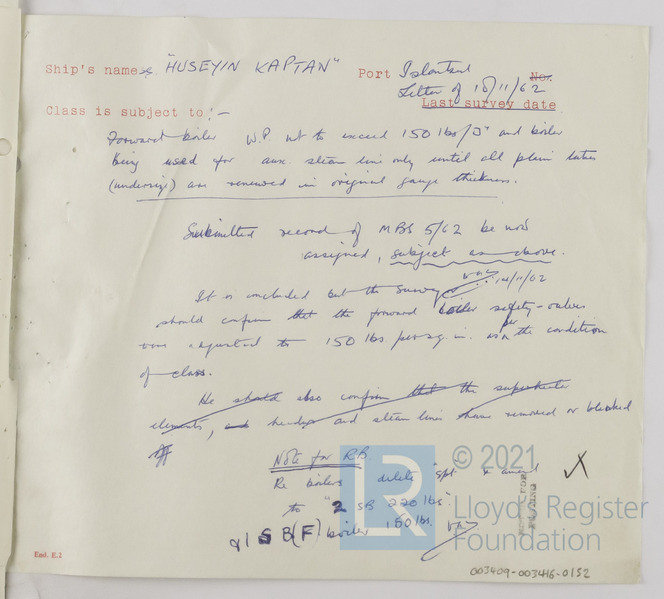 Ship's name "HUSEYIN KAPTAN" Port Istanbul No.
Letter of 15/11/62
Class is subject to:- Last survey date
Forward boiler W.P. not to exceed 150 lbs/□" and boiler
being used for aux. steam line only until all plain tubes
(undersize) are renewed in original gauge thickness.
Submitted record of MBS 5/62 be now
assigned, subject as above.
It is concluded but the Surveyor
should confirm that the forward boiler safety-valves
were adjusted to 150 lbs. per sq. in. as per the condition
of class.
He should also confirm that the superheater
elements, headers and steam lines have removed or blanked
off
Note for RB
Re boilers delete "spt" & amend
to "2 SB 220 lbs"
& 1 SB (F) boiler 150 lbs.
© 2021
Lloyd's Register
Foundation
End. E.2
003409-003416-0152